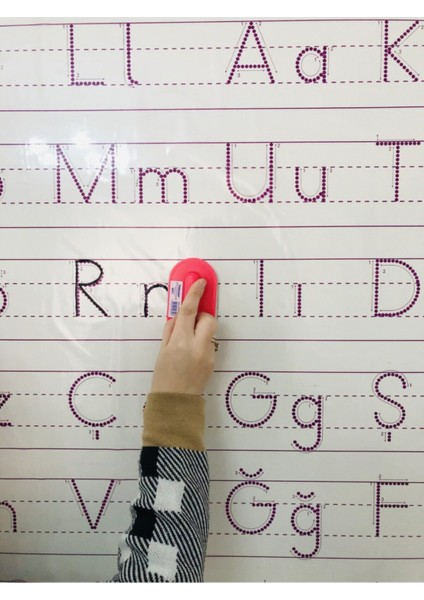 L l A a K
M m U u T
R r I ı D
Ç G g Ş
V Ğ ğ F